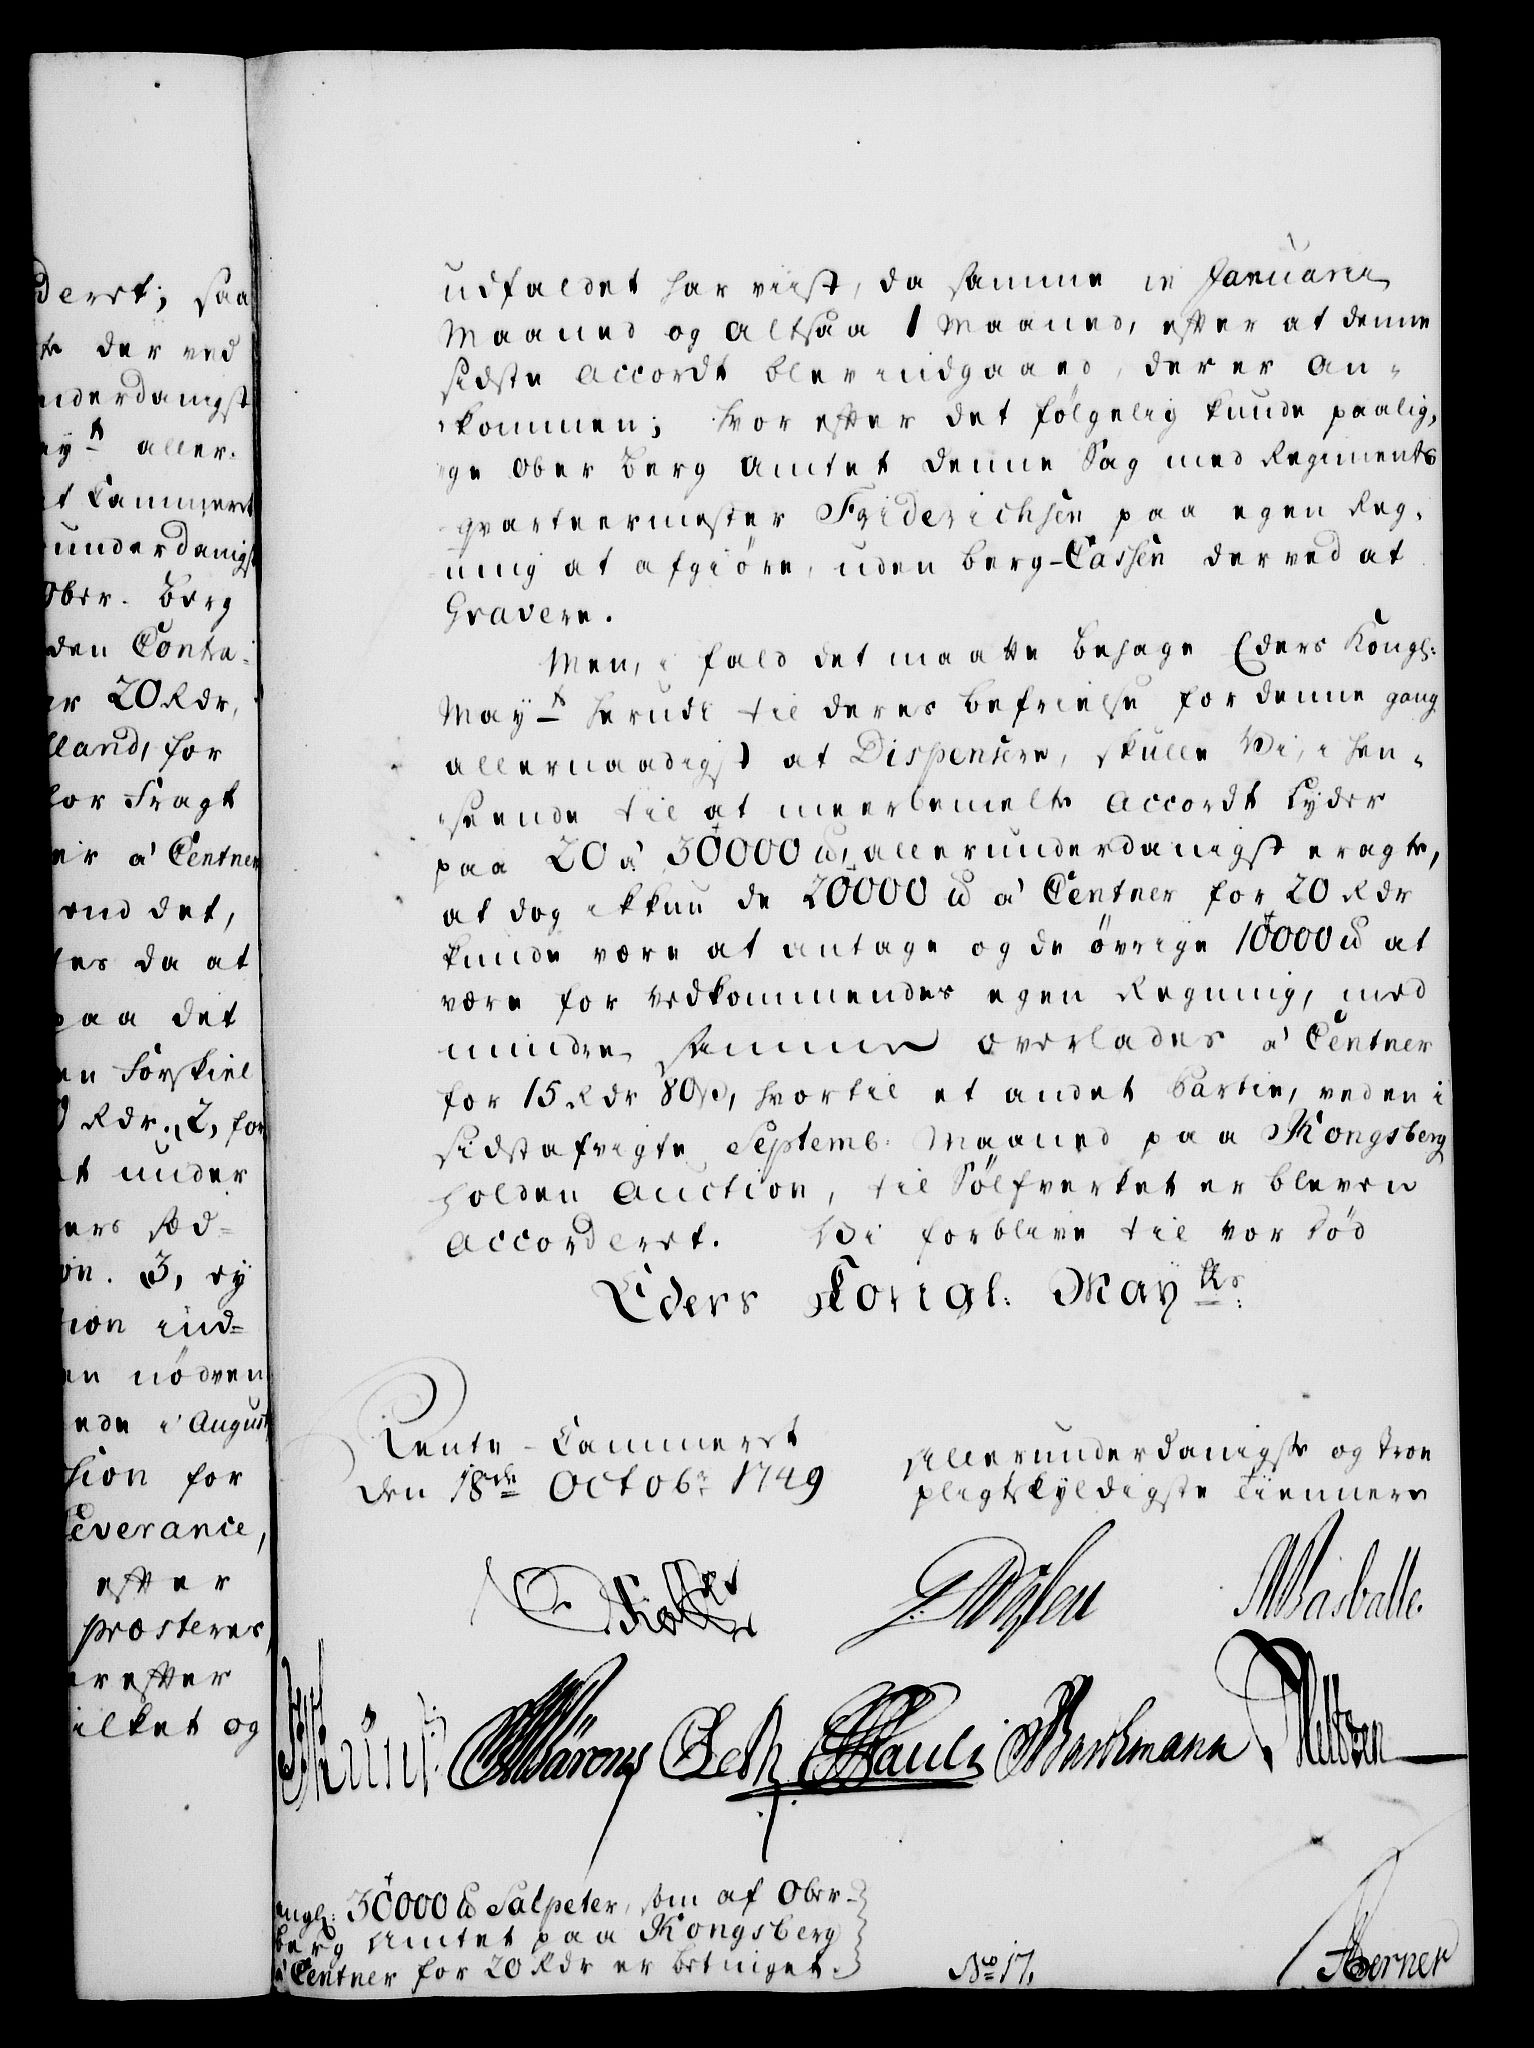 deret; saa
der ved
nderdanigst
ayt aller-
t Cammeret
underdanigst
Ober-Berg
den Contra-
er 20 Rdr,
lland, for
for Fragt
er á Centner
end det,
es da at
paa det
en Forskiel
Rdr. 2, for
t under
ers sæd-
on. 3, ey
tion ind-
en nödven
ede i August
tion for
Leverance,
efter
præsteres,
erefter
ilket og
udfaldet har viist, da samme in Januarii
Maaned og altsaa 1 Maaned, efter at denne
sidste accordt blev indgaaed, der er an-
kommen; hvor efter det fölgelig kunde paalig-
ge Ober Berg Amtet denne Sag med Regiments
qvarteermester Friderichsen paa egen Reg-
ning at afgiöre, uden Berg-Cassen derved at
Gravere.
Men, i fald det maatte behage Eders Kongl:
Mayt herudi til deres befrielse for denne gang
allernaadigst at Dispensere, skulle Vi, i hen-
seende til at meerbemelte Accordt lyder
paa 20 á 30000 ℔, allerunderdanigst eragte,
at dog ikkun de 20000 ℔ á Centner for 20 Rdr
kunde være at antage og de övrige 10000 ℔ at
være for vedkommendes egen Regning, med
mindre samme overlades á Centner
for 15 Rdr 80 ß, hvortil et andet Partie, ved en i
sidstafvigte Septemb: Maaned paa Kongsberg
holden Auction, til Sölfverket er bleven
accorderet. Vi forblive til vor död
Eders Kongl: Mayts:
Rente-Cammeret
den 18de Octobr 1749
Allerunderdanigste og troe
pligtskyldigste Tiennere
Wasballe.
Pauli
Barchmann
ongl: 30000 ℔ Salpeter, som af Ober-
berg Amtet paa Kongsberg
á Centner for 20 Rdr er betinget.
No 17.
Berner